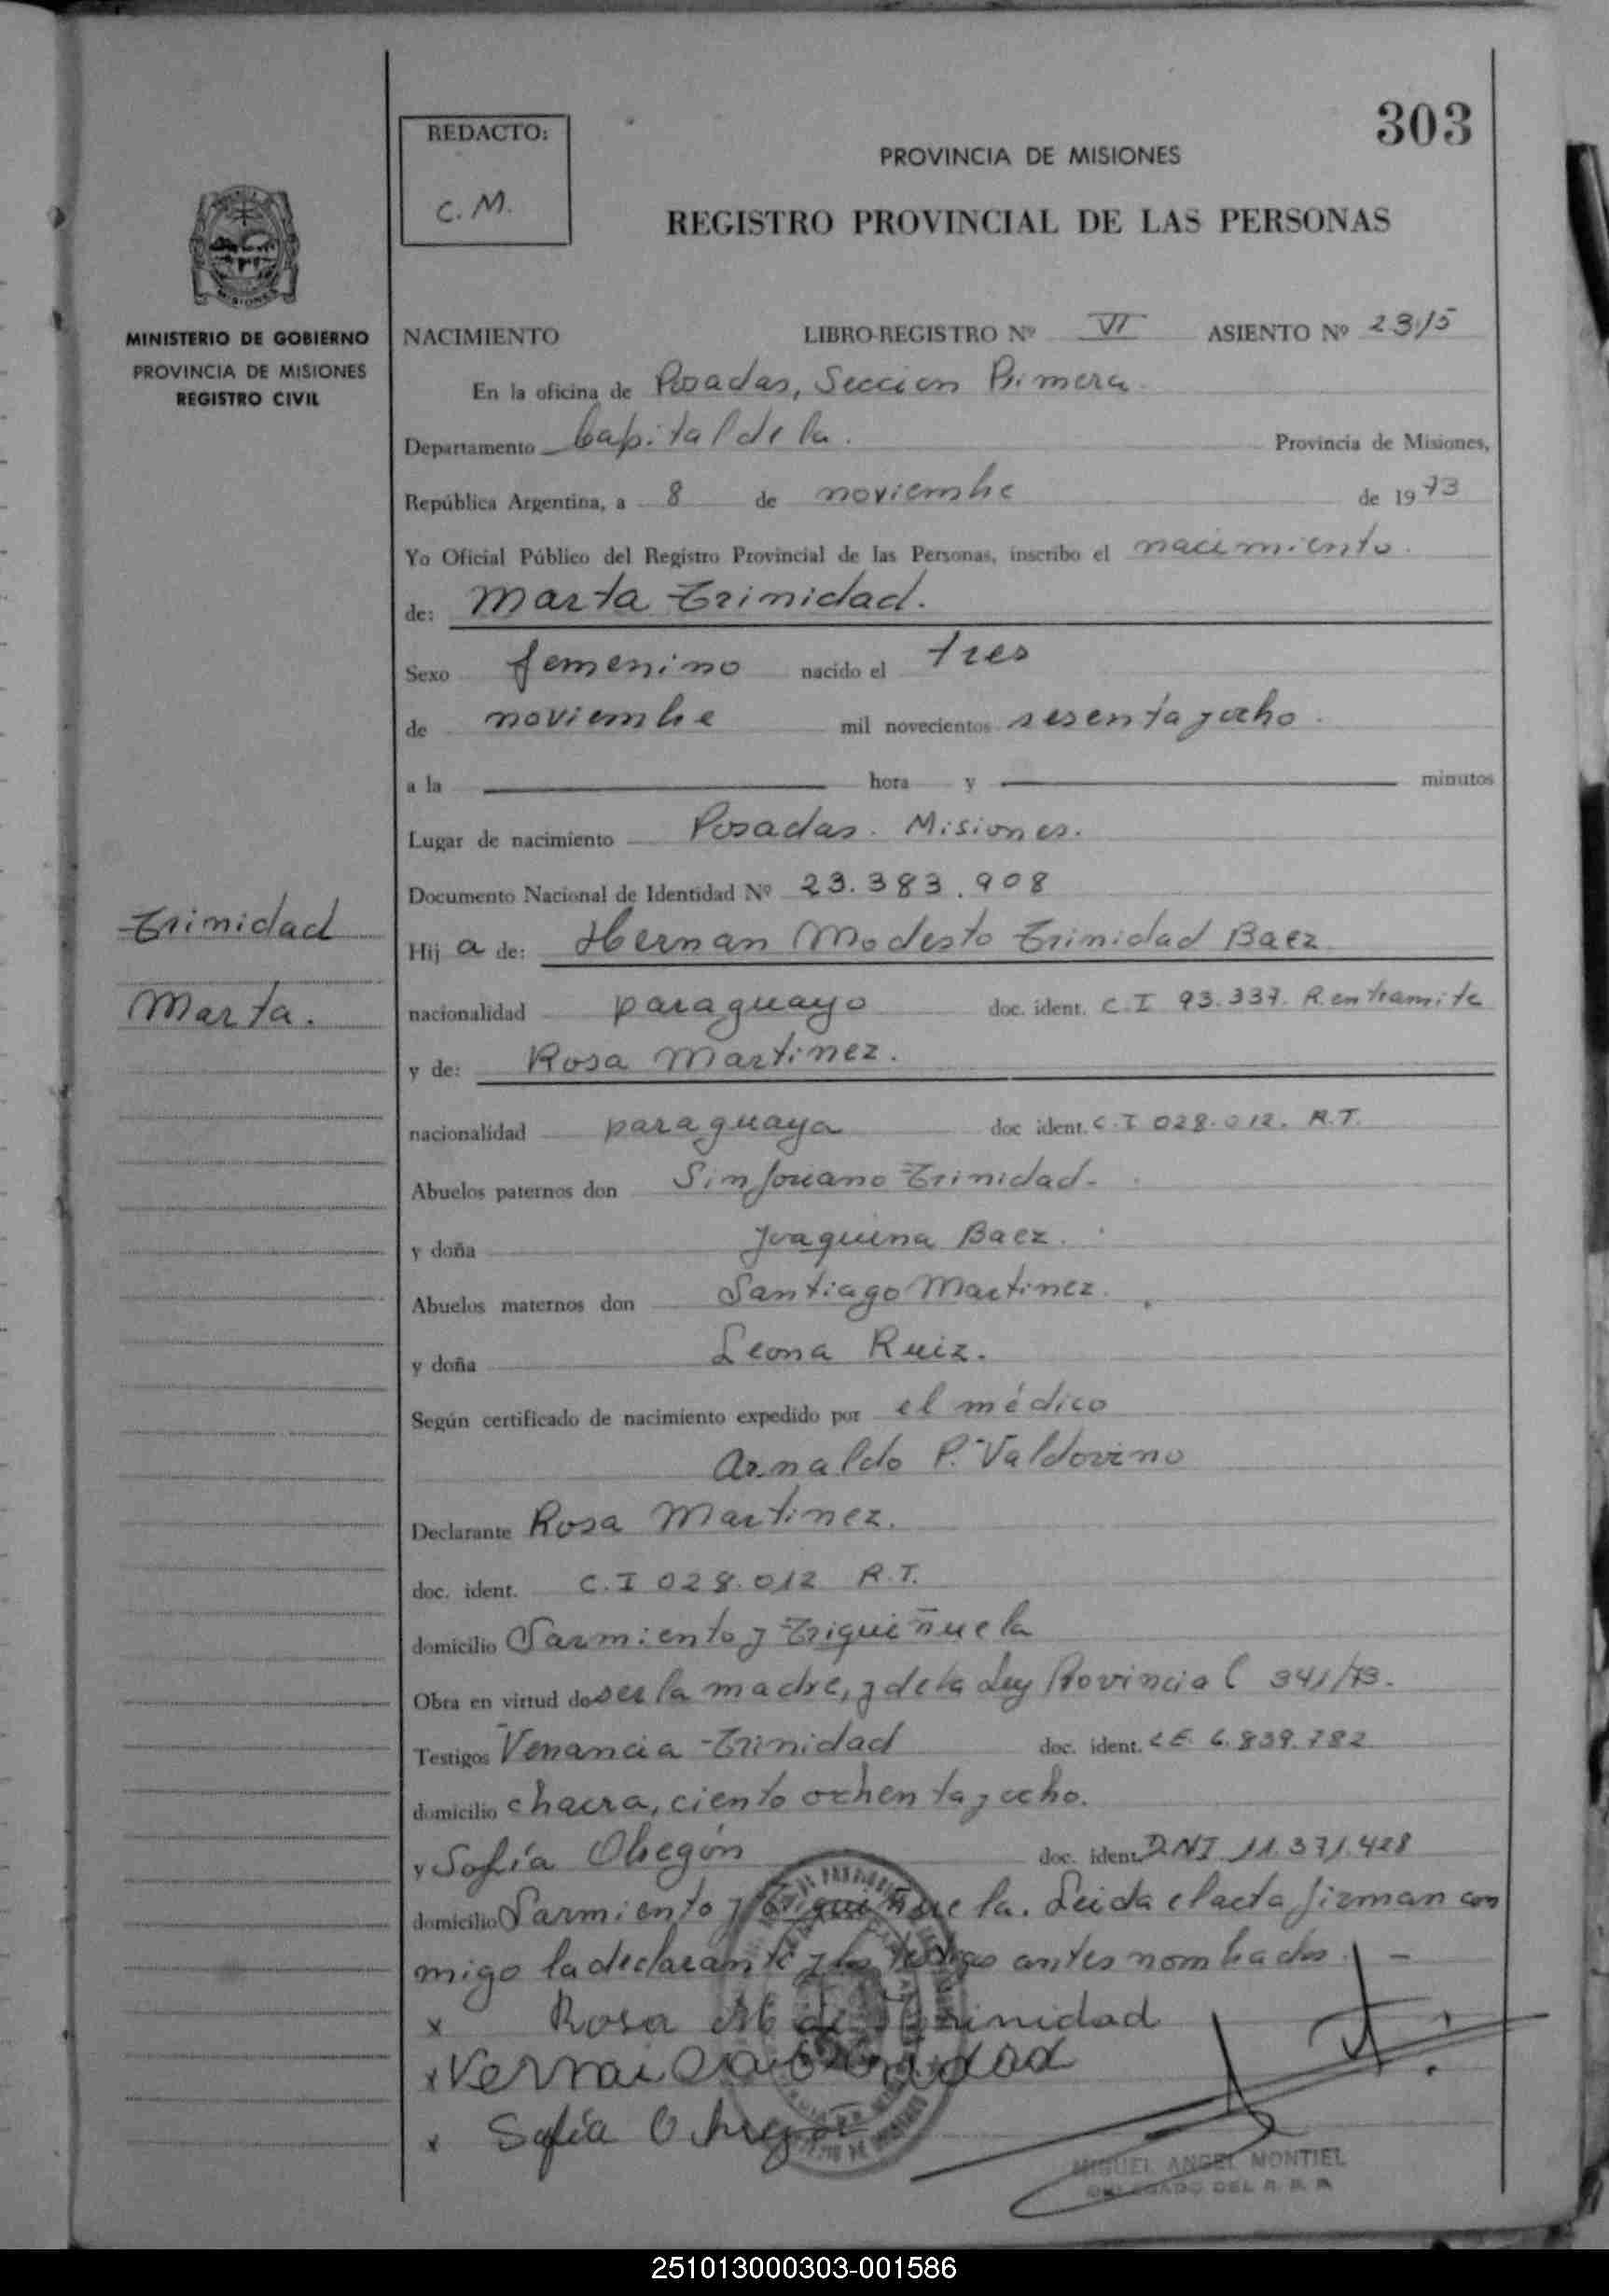 303
REDACTO:
C. M.
PROVINCIA DE MISIONES
REGISTRO PROVINCIAL DE LAS PERSONAS
MISIONES
MINISTERIO DE GOBIERNO
PROVINCIA DE MISIONES
REGISTRO CIVIL
NACIMIENTO LIBRO-REGISTRO Nº VI ASIENTO Nº 2315
En la oficina de Posadas, Seccion Primera
Departamento Capital de la. Provincia de Misiones,
República Argentina, a 8 de noviembre de 1973
Yo Oficial Público del Registro Provincial de las Personas, inscribo el nacimiento.
de: Marta Trinidad.
Sexo femenino nacido el tres
de noviembre mil novecientos sesenta y ocho.
a la hora y minutos
Lugar de nacimiento Posadas. Misiones.
Documento Nacional de Identidad Nº 23.383.908
Trinidad
Marta.
Hij a de: Hernan Modesto Trinidad Baez
nacionalidad paraguayo doc. ident. C.I 93.337. R. en tramite
y de: Rosa Martinez.
nacionalidad paraguaya doc ident. C.I 028.012. R.T.
Abuelos paternos don Sinforiano Trinidad.
y doña Joaquina Baez.
Abuelos maternos don Santiago Martinez.
y doña Leona Ruiz.
Según certificado de nacimiento expedido por el médico
Arnaldo P. Valdovino
Declarante Rosa Martinez.
doc. ident. C.I 028.012 R.T.
domicilio Sarmiento y Triguiñuela
Obra en virtud de ser la madre, y de la Ley Provincial 341/73.
Testigos Venancia Trinidad doc. ident. LE. 6.839.782
domicilio chacra, ciento ochenta y ocho.
y Sofía Obregón doc. ident. DNI 11.371.428
domicilio Sarmiento y Triguiñuela. Leida el acta firman con
migo la declarante y los testigos antes nombrados. -
x Rosa M de Trinidad
x
x Sofía Obregon
MIGUEL ANGEL MONTIEL
DELEGADO DEL R. P. P.
251013000303-001586